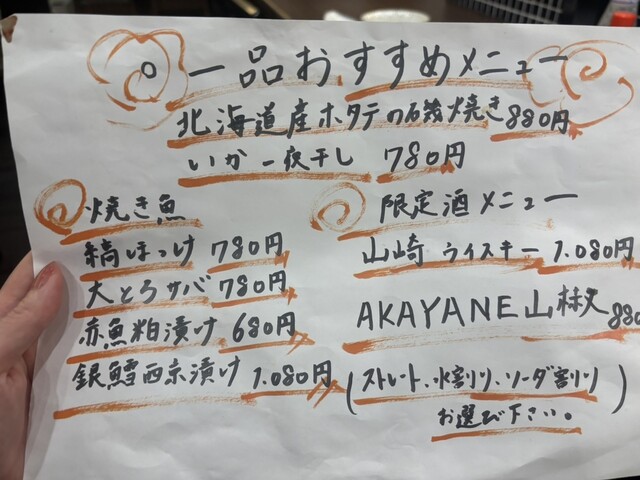 一品おすすめメニュー
北海道産ホタテの磯焼き 880円
いか一夜干し 780円
焼き魚
縞ほっけ 780円
大とろサバ 780円
赤魚粕漬け 680円
銀鱈西京漬け 1.080円
限定酒メニュー
山崎 ウイスキー 1.080円
AKAYANE山椒 880
(ストレート、水割り、ソーダ割り)
お選び下さい。